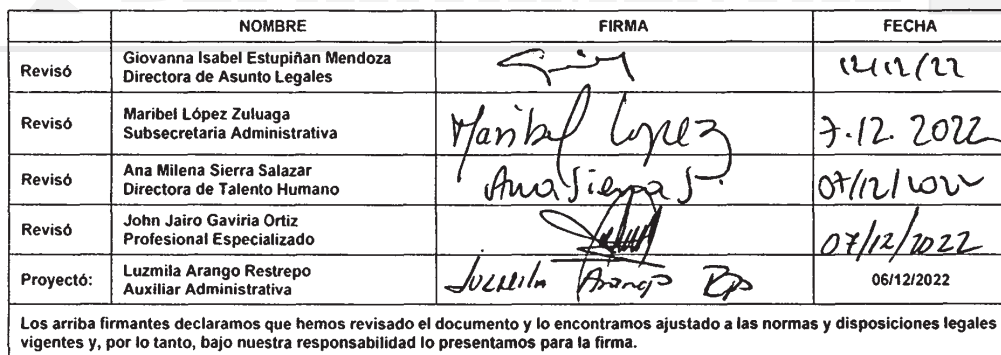 NOMBRE FIRMA FECHA
Revisó Giovanna Isabel Estupiñan Mendoza
Directora de Asunto Legales 12/12/22
Revisó Maribel López Zuluaga
Subsecretaria Administrativa Maribel Lopez 7.12.2022
Revisó Ana Milena Sierra Salazar
Directora de Talento Humano Ana Sierra S. 07/12/2022
Revisó John Jairo Gaviria Ortiz
Profesional Especializado 07/12/2022
Proyectó: Luzmila Arango Restrepo
Auxiliar Administrativa Luzmila Arango 06/12/2022
Los arriba firmantes declaramos que hemos revisado el documento y lo encontramos ajustado a las normas y disposiciones legales
vigentes y, por lo tanto, bajo nuestra responsabilidad lo presentamos para la firma.